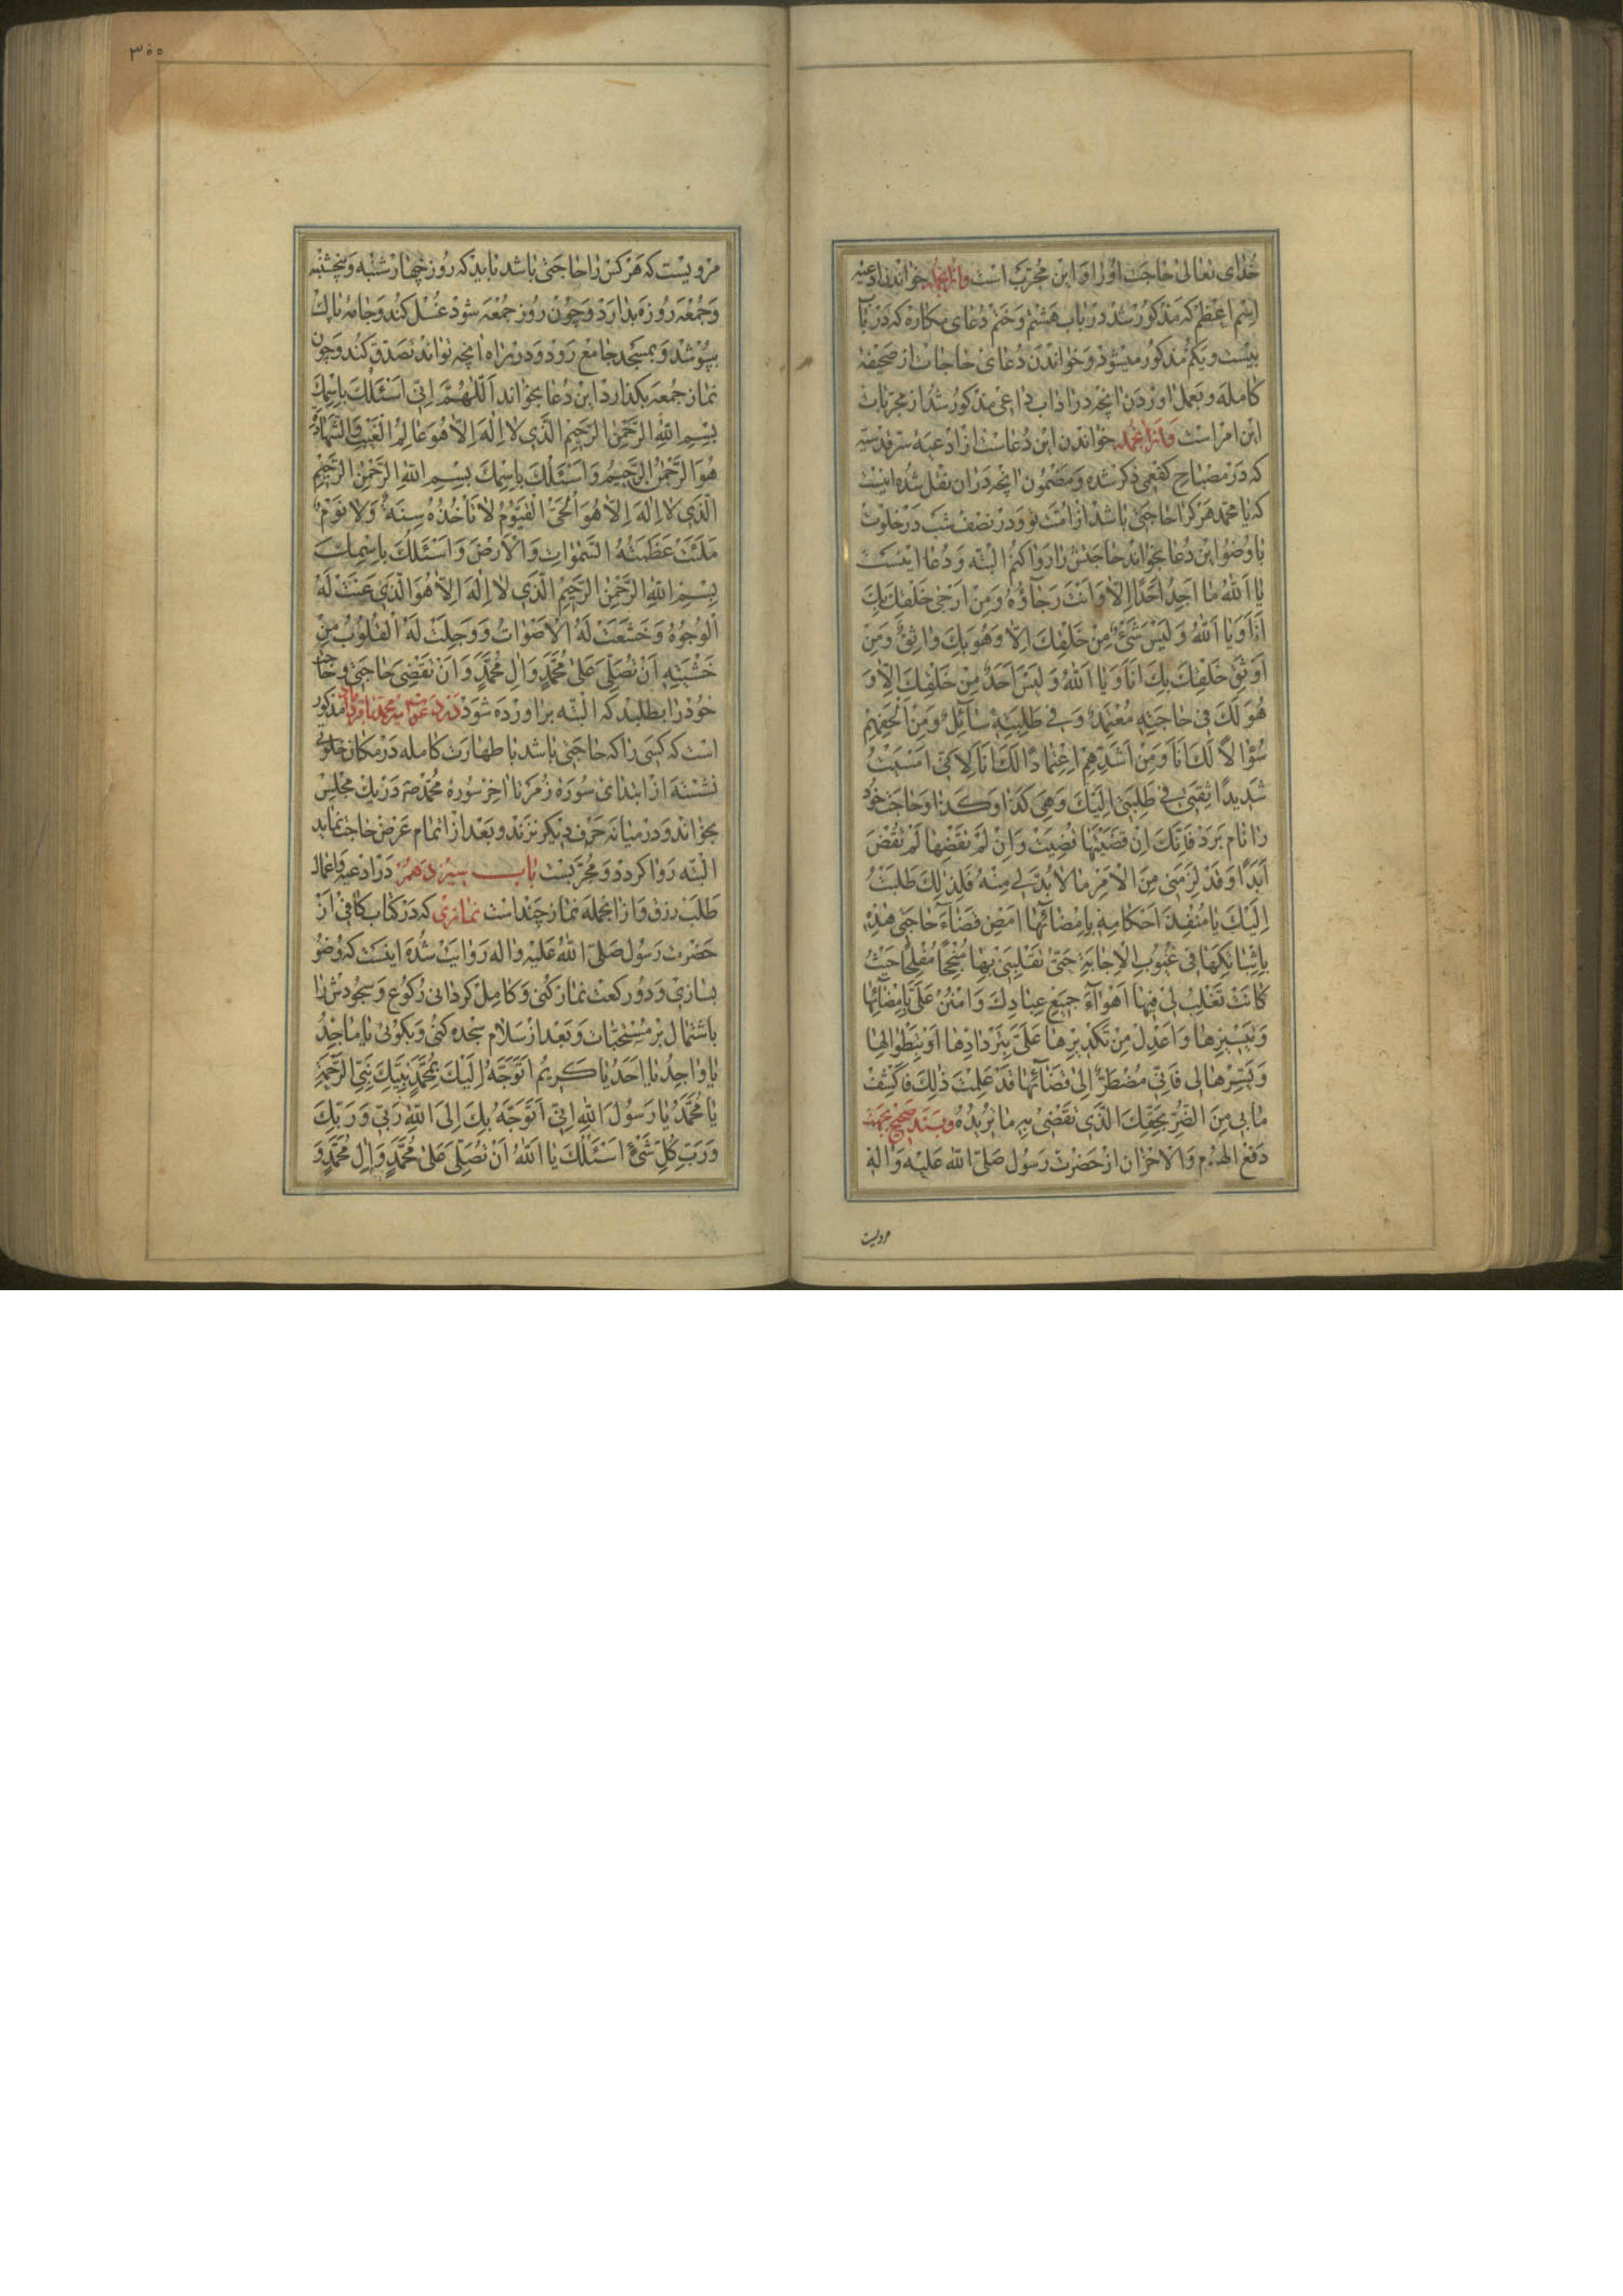 خدای تعالی حاجت او را روا این مجربست وازانجمله خواندن ادعیه
اسم اعظم که مذکور شد در باب هشتم و ختم دعای مکاره که در باب
بیست و یکم مذکور میشود و خواندن دعای حاجات از صحیفه
کامله و بعمل اوردن انچه در اداب داعی مذکور شد از مجربات
این امر است وازانجمله خواندن این دعاست از ادعیه سر قدسیه
که در مصباح کفعمی ذکر شده و مضمون انچه در ان نقل شده اینست
که یا محمد هر کرا حاجتی باشد از امت تو و در نصف شب در خلوت
با وضو این دعا بخواند حاجتش را روا کنم البته و دعا اینست
یا اَللهُ ما اَجِدُ اَحَدًا اِلّا وَاَنْتَ رَجآؤُهُ وَمِنْ اَرْجیٰ خَلْقِكَ بِكَ
اَنَا وَیا اَللهُ وَلَیْسَ شَیْءٌ مِنْ خَلْقِكَ اِلّا وَهُوَ بِكَ واثِقٌ وَمِنْ
اَوْثَقِ خَلْقِكَ بِكَ اَنَا وَیا اَللهُ وَلَیْسَ اَحَدٌ مِنْ خَلْقِكَ اِلّا وَ
هُوَ لَكَ فی حاجَتِهِ مُعْتَمِدٌ وَفی طَلِبَتِهِ سآئِلٌ وَمِنْ اَلْحَفِهِمْ
سُؤالًا لَكَ اَنَا وَمِنْ اَشَدِّهِمْ اِعْتِمادًا لَكَ اَنَا لِاَنّی اَمْسَیْتُ
شَدیدًا ثِقَتی فی طَلِبَتی اِلَیْكَ وَهِیَ كَذا وَكَذا و حاجت خود
را نام برد فَاِنَّكَ اِنْ قَضَیْتَها قُضِیَتْ وَاِنْ لَمْ تَقْضِها لَمْ تُقْضَ
اَبَدًا وَقَدْ لَزِمَنی مِنَ الْاَمْرِ ما لا بُدَّ لی مِنْهُ فَلِذلِكَ طَلَبْتُ
اِلَیْكَ یا مُنْفِذَ اَحْكامِهِ بِاِمْضآئِها اَمْضِ قَضآءَ حاجَتی هٰذِهِ
بِاِثْباتِكَها فی غُیُوبِ الْاِجابَةِ حَتّیٰ تَقْلِبَنی بِها مُنْجِحًا مُفْلِحًا حَیْثُ
كانَتْ تَغْلِبُ لی فیها اَهْوآءَ جَمیعِ عِبادِكَ وَامْنُنْ عَلَیَّ بِاِمْضآئِها
وَتَیْسیرِها وَاعْدِلْ مِنْ تَكْدیرِها عَلَیَّ بِتَرْدادِها اَوْ بِتَطْوالِها
وَیَسِّرْها لی فَاِنّی مُضْطَرٌّ اِلیٰ قَضآئِها قَدْ عَلِمْتَ ذٰلِكَ فَاكْشِفْ
ما بی مِنَ الضُّرِّ بِحَقِّكَ الَّذی تَقْضی بِهِ ما تُریدُهُ و بسند صحیح بجهت
دفع الهموم والاحزان از حضرت رسول صلی الله علیه وآله
مرویست
۳۰۰
مرویست که هر کس را حاجتی باشد باید که روز چهارشنبه و پنجشنبه
و جمعه روزه بدارد و چون روز جمعه شود غسل کند و جامه پاک
بپوشد و بمسجد جامع رود و در راه انچه تواند تصدق کند و چون
نماز جمعه بگذارد این دعا بخواند اَللّٰهُمَّ اِنّی اَسْئَلُكَ بِاسْمِكَ
بِسْمِ اللهِ الرَّحْمٰنِ الرَّحیمِ الَّذی لا اِلٰهَ اِلّا هُوَ عالِمُ الْغَیْبِ وَالشَّهادَةِ
هُوَ الرَّحْمٰنُ الرَّحیمُ وَاَسْئَلُكَ بِاسْمِكَ بِسْمِ اللهِ الرَّحْمٰنِ الرَّحیمِ
الَّذی لا اِلٰهَ اِلّا هُوَ الْحَیُّ الْقَیُّومُ لا تَأْخُذُهُ سِنَةٌ وَلا نَوْمٌ
مَلَئَتْ عَظَمَتُهُ السَّمٰواتِ وَالْاَرْضَ وَاَسْئَلُكَ بِاسْمِكَ
بِسْمِ اللهِ الرَّحْمٰنِ الرَّحیمِ الَّذی لا اِلٰهَ اِلّا هُوَ الَّذی عَنَتْ لَهُ
الْوُجُوهُ وَخَشَعَتْ لَهُ الْاَصْواتُ وَوَجِلَتْ لَهُ الْقُلُوبُ مِنْ
خَشْیَتِهِ اَنْ تُصَلِّیَ عَلیٰ مُحَمَّدٍ وَالِ مُحَمَّدٍ وَاَنْ تَقْضِیَ حاجَتی و حاجت
خود را بطلبد که البته براورده شود مذکور
است که کسی را که حاجتی باشد با طهارت کامله در مکان خلوتی
نشسته از ابتدای سوره زمر تا اخر سوره محمد ص در یک مجلس
بخواند و در میانه حرف دیگر نزند و بعد از اتمام عرض حاجت نماید
البته روا گردد و مجربست باب سیزدهم در ادعیه و اعمال
طلب رزق و ازانجمله نماز چند است نمازی که در کتاب کافی از
حضرت رسول صلی الله علیه واله روایت شده اینست که وضو
بسازی و دو رکعت نماز کنی و کامل گردانی رکوع و سجودش را
باشتمال بر مستحبات و بعد از سلام سجده کنی و بگوئی یا ماجِدُ
یا واجِدُ یا اَحَدُ یا كَریمُ اَتَوَجَّهُ اِلَیْكَ بِمُحَمَّدٍ نَبِیِّكَ نَبِیِّ الرَّحْمَةِ
یا مُحَمَّدُ یا رَسُولَ اللهِ اِنّی اَتَوَجَّهُ بِكَ اِلَی اللهِ رَبّی وَرَبِّكَ
وَرَبِّ كُلِّ شَیْءٍ اَسْئَلُكَ یا اَللهُ اَنْ تُصَلِّیَ عَلیٰ مُحَمَّدٍ وَالِ مُحَمَّدٍ وَ